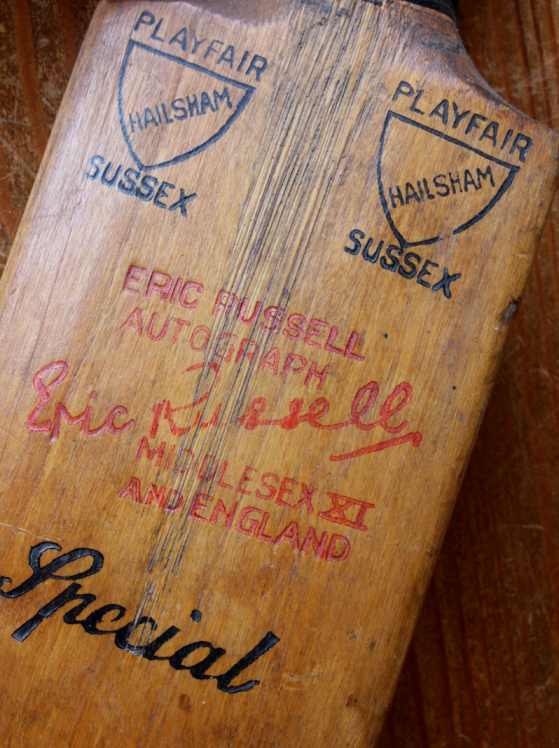 PLAYFAIR
HAILSHAM
SUSSEX
PLAYFAIR
HAILSHAM
SUSSEX
ERIC RUSSELL
AUTOGRAPH
Eric Russell
MIDDLESEX XI
AND ENGLAND
Special